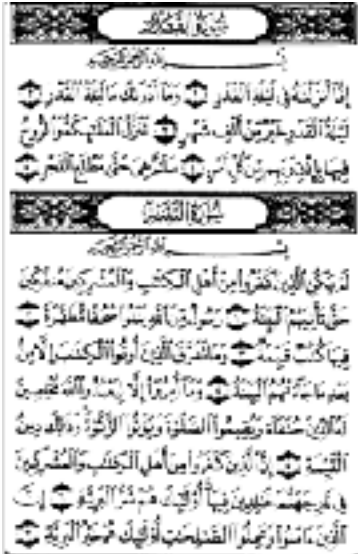 سُورَةُ القَدْرِ
بِسْمِ اللَّهِ الرَّحْمَٰنِ الرَّحِيمِ
إِنَّا أَنزَلْنَاهُ فِي لَيْلَةِ الْقَدْرِ ۝ وَمَا أَدْرَاكَ مَا لَيْلَةُ الْقَدْرِ ۝
لَيْلَةُ الْقَدْرِ خَيْرٌ مِّنْ أَلْفِ شَهْرٍ ۝ تَنَزَّلُ الْمَلَائِكَةُ وَالرُّوحُ
فِيهَا بِإِذْنِ رَبِّهِم مِّن كُلِّ أَمْرٍ ۝ سَلَامٌ هِيَ حَتَّىٰ مَطْلَعِ الْفَجْرِ ۝
سُورَةُ البَيِّنَةِ
بِسْمِ اللَّهِ الرَّحْمَٰنِ الرَّحِيمِ
لَمْ يَكُنِ الَّذِينَ كَفَرُوا مِنْ أَهْلِ الْكِتَابِ وَالْمُشْرِكِينَ مُنفَكِّينَ
حَتَّىٰ تَأْتِيَهُمُ الْبَيِّنَةُ ۝ رَسُولٌ مِّنَ اللَّهِ يَتْلُو صُحُفًا مُّطَهَّرَةً ۝
فِيهَا كُتُبٌ قَيِّمَةٌ ۝ وَمَا تَفَرَّقَ الَّذِينَ أُوتُوا الْكِتَابَ إِلَّا مِن
بَعْدِ مَا جَاءَتْهُمُ الْبَيِّنَةُ ۝ وَمَا أُمِرُوا إِلَّا لِيَعْبُدُوا اللَّهَ مُخْلِصِينَ
لَهُ الدِّينَ حُنَفَاءَ وَيُقِيمُوا الصَّلَاةَ وَيُؤْتُوا الزَّكَاةَ وَذَٰلِكَ دِينُ
الْقَيِّمَةِ ۝ إِنَّ الَّذِينَ كَفَرُوا مِنْ أَهْلِ الْكِتَابِ وَالْمُشْرِكِينَ
فِي نَارِ جَهَنَّمَ خَالِدِينَ فِيهَا أُولَٰئِكَ هُمْ شَرُّ الْبَرِيَّةِ ۝ إِنَّ
الَّذِينَ آمَنُوا وَعَمِلُوا الصَّالِحَاتِ أُولَٰئِكَ هُمْ خَيْرُ الْبَرِيَّةِ ۝